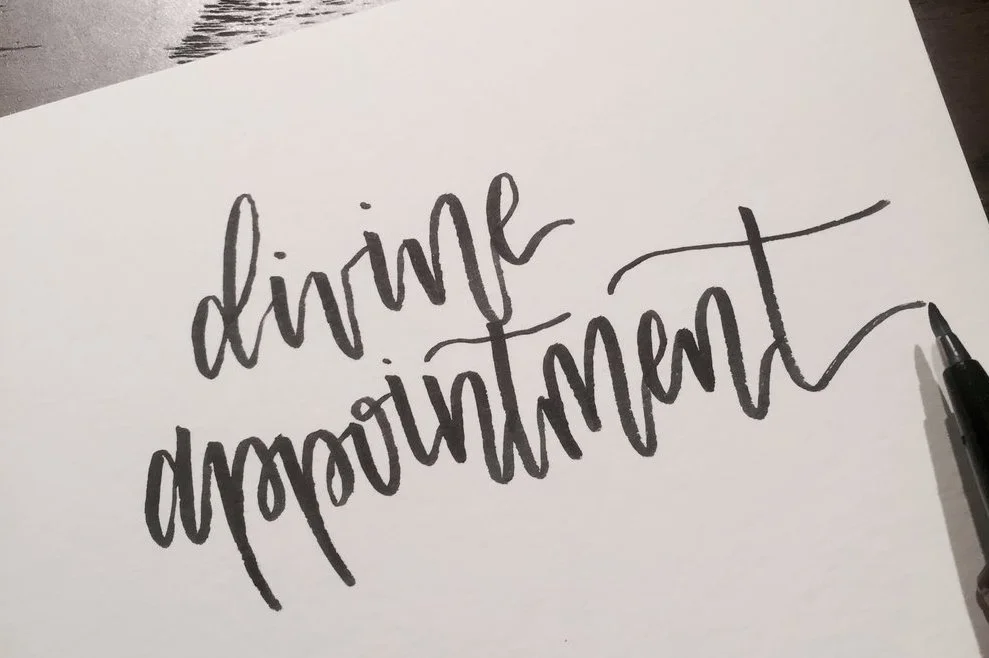 divine
appointment